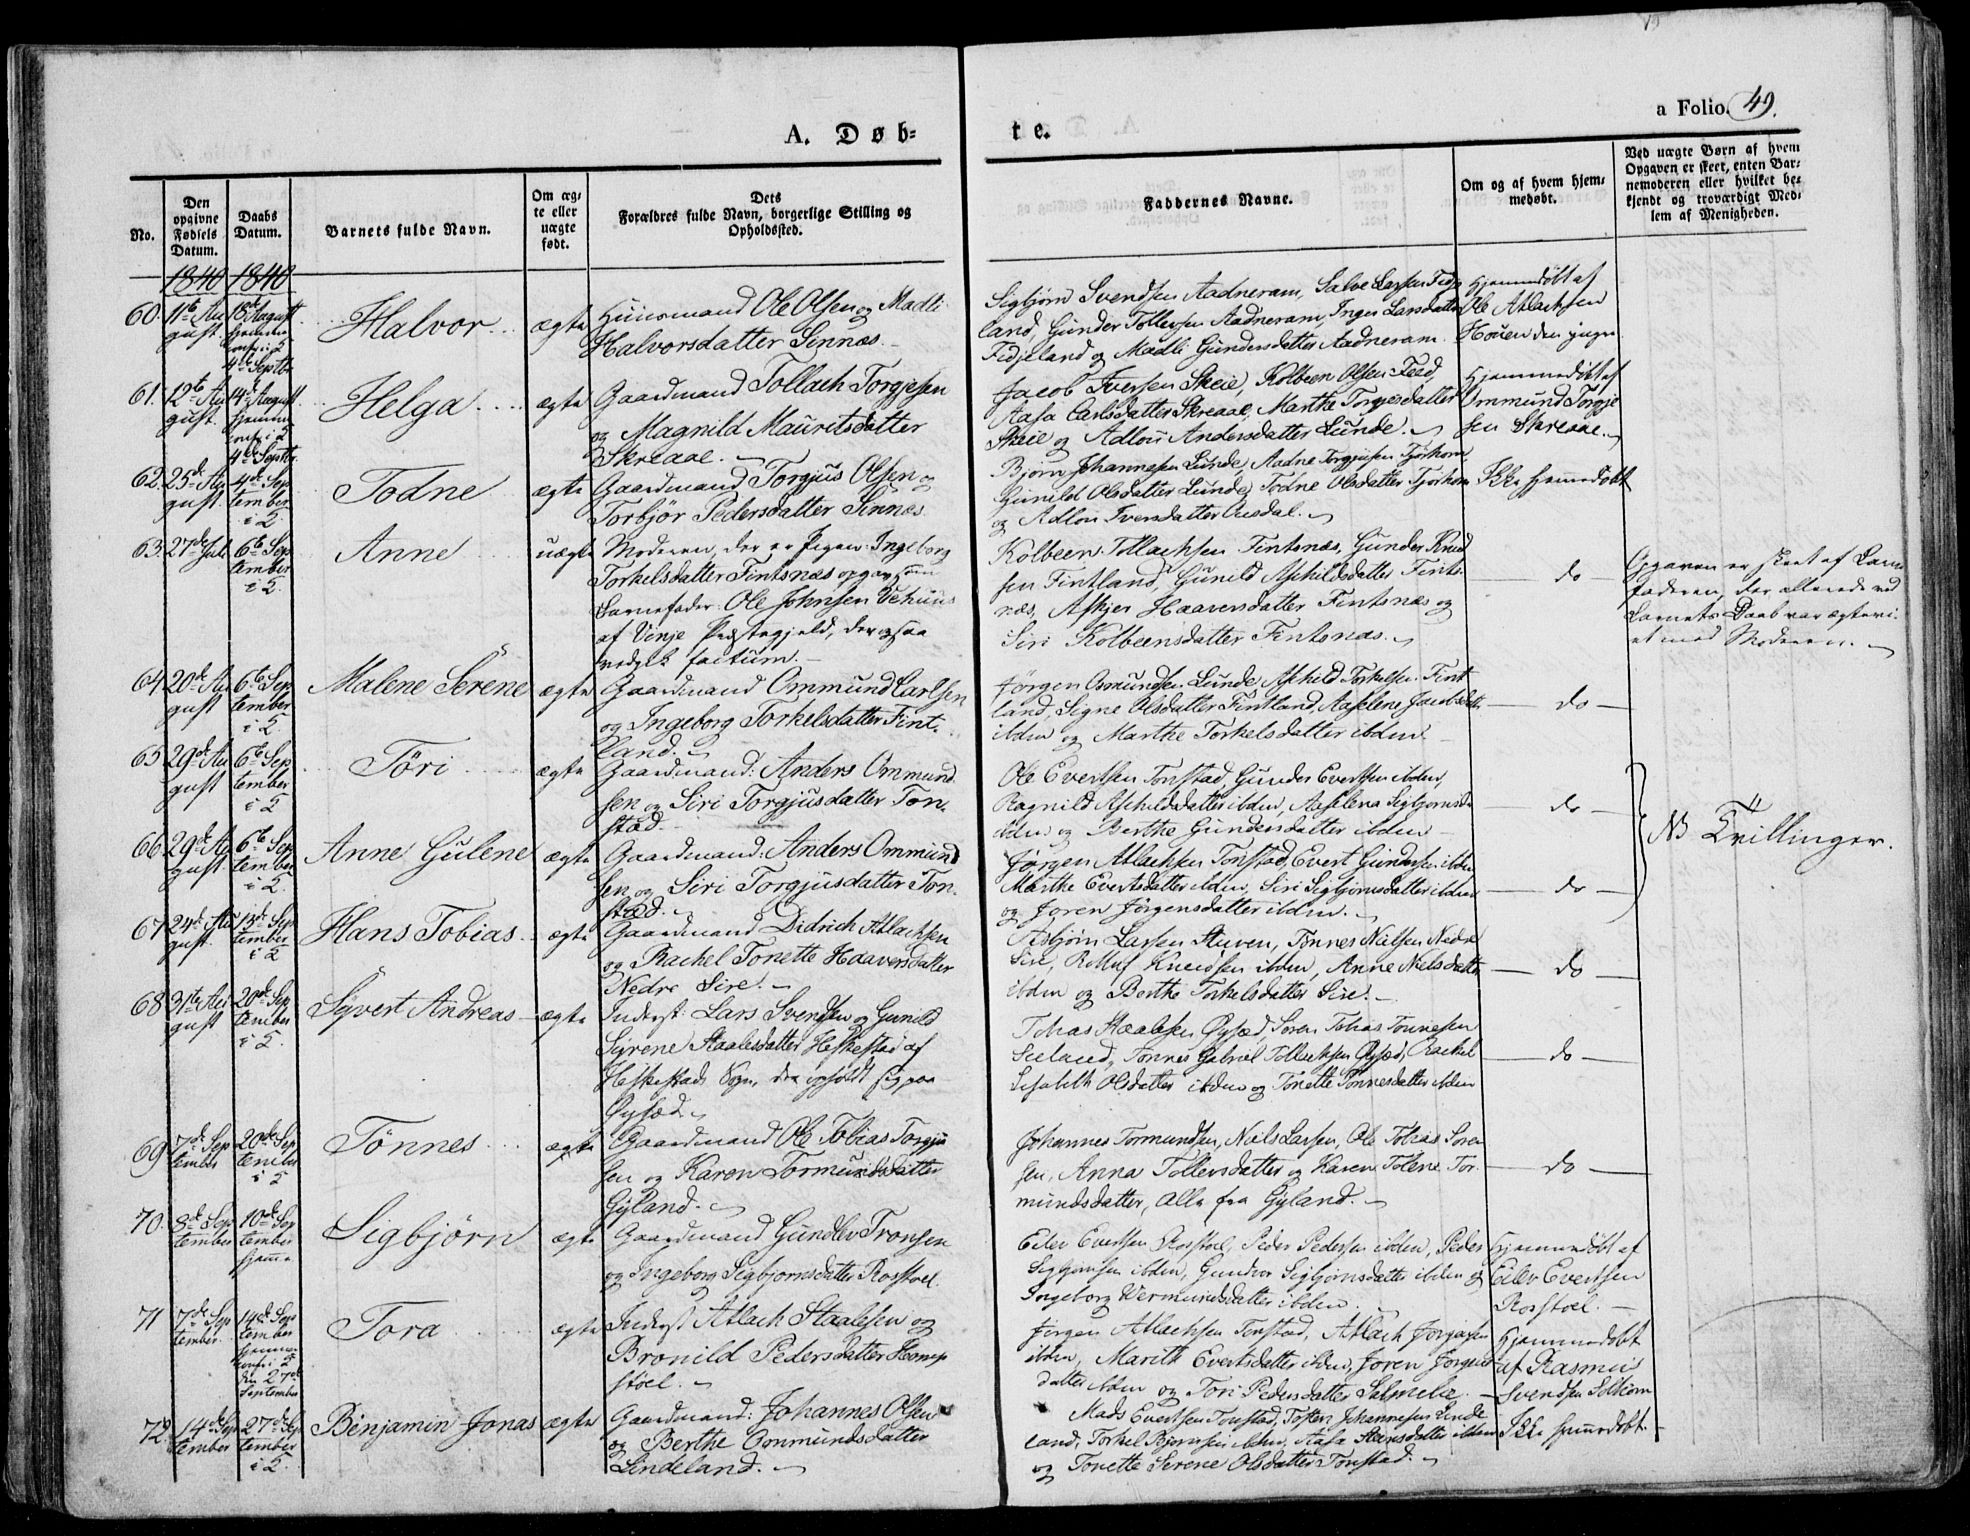 A. Døb-
te.
a Folio. 49.
No.
Den opgivne Fødsels Datum.
Daabs Datum.
Barnets fulde Navn.
Om ægte eller uægte født.
Dets Forældres fulde Navn, borgerlige Stilling og Opholdssted.
Faddernes Navne.
Om og af hvem hjemmedøbt.
Ved uægte Børn af hvem Opgaven er skeet, enten Barnemoderen eller hvilket bekjendt og troværdigt Medlem af Menigheden.
1840 1840
60. 11te August. 18de August hjemme conf. i 2 4de Septbr
Halvor
ægte
Huusmand Ole Olsen og Madli
Halvorsdatter Sinnes.
Sigbjørn Svendsen Aadneram, Salve Larsen Fidje
land, Gunder Tollevsen Aadneram, Inger Larsdatter
Fidjeland og Madli Gundersdatter Aadneram.
Hjemmedøbt af
Ole Atlachsen
Houen den yngre
61. 12te August. 14de August hjemme conf. i 2 4de Septbr.
Helga
ægte
Gaardmand Tollach Torgjesen
og Magnild Mauritsdatter
Skreaae.
Jacob Iversen Skeie, Kolbeen Olsen Feed,
Aasa Carlsdatter Skreaae, Marthe Torgjesdatter
Skeie og Adlou Andersdatter Lunde.
Hjemmedøbt af
Ommund Torgje
sen Skreaae.
62. 25de August. 4de September i 2.
Todne
ægte
Gaardmand Torgjus Olsen og
Torbjør Pedersdatter Sinnes
Bjørn Johannesen Lunde, Aadne Torgjusen Tjørhom
Gunild Olsdatter Lunde, Todne Olsdatter Tjørhom
og Adlou Iversdatter Ousdal.
Ikke hjemmedøbt
63. 27de Juli 6te September i 2.
Anne
uægte
Moderen, der er Pigen Ingeborg
Torkelsdatter Fintsnæs opgav som
Barnefader: Ole Johnsen Vehuus
af Vinje Præstegjeld, der ogsaa
vedgik factum.
Kolbeen Tollachsen Fintsnæs, Gunder Knud
sen Fintland, Gunild Aschildsdatter Fints
næs, Askjer Haaversdatter Fintsnæs og
Siri Kolbeensdatter Fintsnæs.
do
Opgaven er skeet af Barne
faderen, der allerede ved
Barnets Daab var ægtevi
et med Moderen.
64. 20de August 6te September i 2
Malene Serene
ægte
Gaardmand Ommund Carlsen
og Ingeborg Torkelsdatter Fint-
land.
Jørgen Osmundsen Lunde, Aschild Torkelsen Fint
land, Segne Olsdatter Fintland, Aaselene Jacobsdatter
ibden og Marthe Torkelsdatter ibden
do
65 29de August 6te September i 2
Töri
ægte
Gaardmand: Anders Ommund
sen og Siri Torgjusdatter Ton-
stad.
Ole Evertsen Tonstad, Gunder Evertsen ibden,
Ragnild Aschildsdatter ibden, Aaselena Sigbjørnsd.
ibden og Berthe Gundersdatter ibden
do
66. 29de August 6te September i 2.
Anne Gulene
ægte
Gaardmand: Anders Ommund
sen og Siri Torgjusdatter Ton-
stad.
Jørgen Atlachsen Tonstad, Evert Gundersen ibden
Marthe Evertsdatter ibden, Siri Sigbjørnsdatter ibden
og Joren Jørgensdatter ibden.
do
NB Tvillinger.
67 24de August. 13de September i 2
Hans Tobias
ægte
Gaardmand Didrich Atlachsen
og Rachel Tonette Haaversdatter
Nedre Sire.
Asbjørn Larsen Stuven, Tønnes Nielsen Nedre
Sire, Rolluf Knudsen ibden, Anne Nielsdatter
ibden og Berthe Torkelsdatter Sire.
do
68 31te August 20de September i 2.
Syvert Andreas
ægte
Inderst: Lars Svendsen og Gunild
Syrene Staalesdatter Heskestad af
Heskestads Sogn, der opholdt sig paa
Øysæd.
Tobias Staalesen Øysæd, Søren Tobias Tønnesen
Seeland, Tønnes Gabriel Tollachsen Øysæd, Rachel
Lisabeth Olsdatter ibden og Tonette Tønnesdatter ibden
do
69 7de September 20de September i 2
Tönnes
ægte
Gaardmand Ole Tobias Torgju
sen og Karen Tormundsdatter
Gyland.
Johannes Tormundsen, Niels Larsen, Ole Tobias Soren
sen, Anna Tollevsdatter og Karen Tolene Tor-
mundsdatter, alle fra Gyland.
do
70. 8de September 10de September hjemme
Sigbjørn
ægte
Gaardmand Gundlev Tronsen
og Ingeborg Sigbjørnsdatter Rosstoel
Eilev Evertsen Rosstoel, Peder Pedersen ibden, Peder
Sigbjørnsen ibden, Gundvor Sigbjørnsdatter ibden og
Ingeborg Vermundsdatter ibden.
Hjemmedøbt af
Eilev Evertsen
Rosstoel.
71 7de September. 14de September hjemme conf. i 2 den 27de September
Tora
ægte
Inderst Atlach Staalesen og
Bronild Pedersdatter Homp
støel.
Jørgen Atlachsen Tonstad, Atlach Jørgensen
ibden, Marith Evertsdatter ibden, Joren Jørgens
datter ibden og Tori Pedersdatter Salmeli.
Hjemmedøbt
af Rasmus
Svendsen Solhom
72. 14de September 27de September i 2.
Benjamin Jonas
ægte
Gaardmand: Johannes Olsen
og Berthe Ommundsdatter
Lindeland.
Mads Evertsen Tonstad, Tosten Johannesen Linde
land, Torkel Bjørnsen ibden, Aasa Hansdatter ibden
og Tonette Serene Olsdatter Tonstad.
Ikke hjemmedøbt